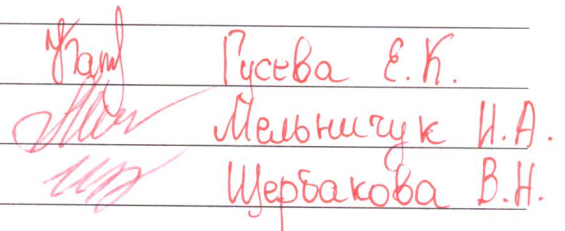 Гусева Е.К.
Мельничук И.А.
Щербакова В.Н.